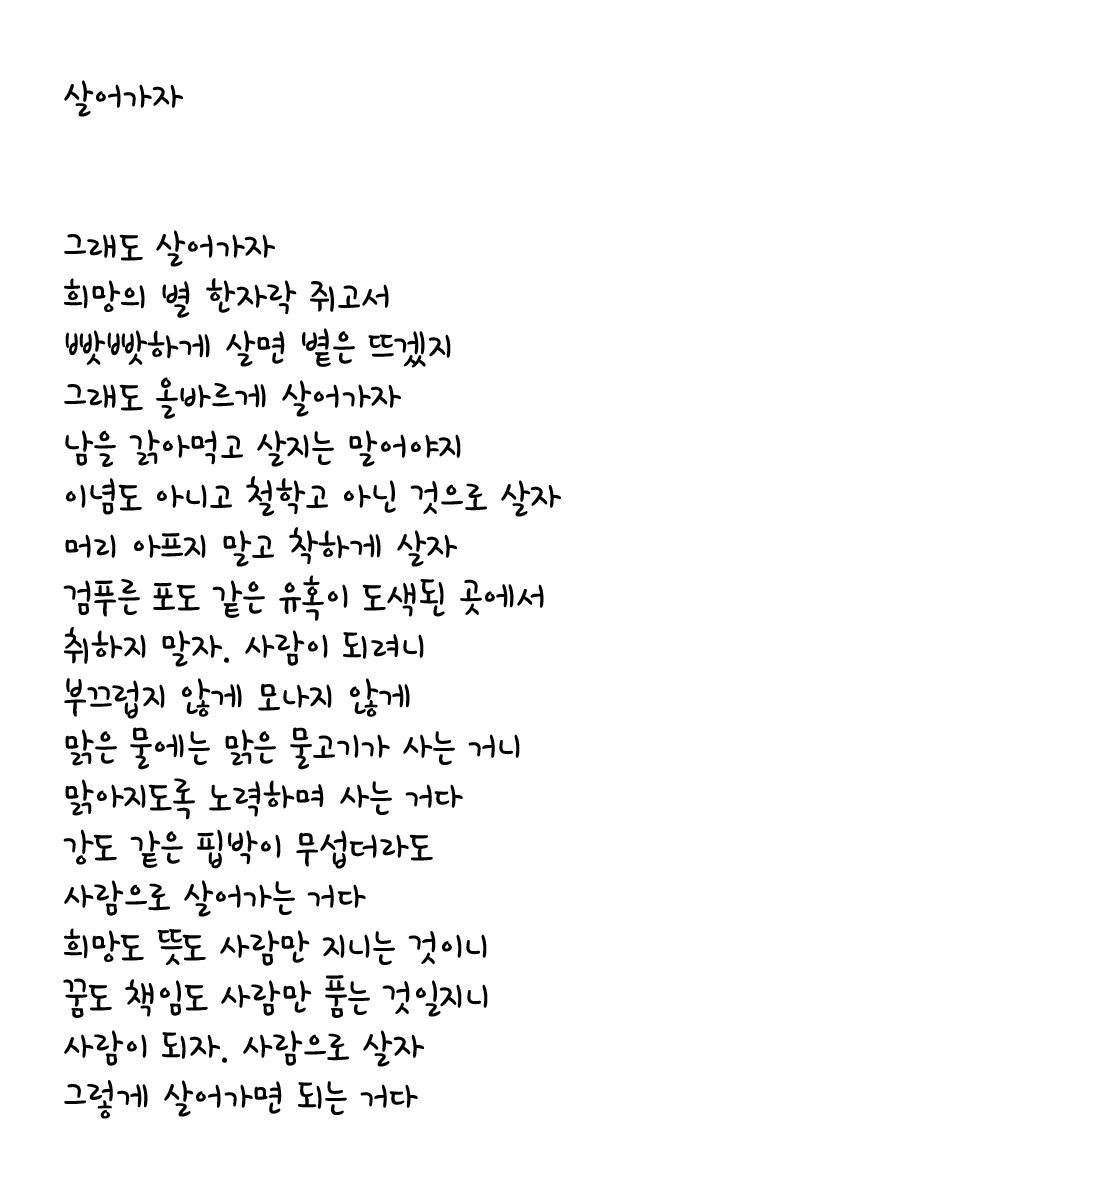 살어가자
그래도 살어가자
희망의 별 한자락 쥐고서
빳빳하게 살면 볕은 뜨겠지
그래도 올바르게 살어가자
남을 갉아먹고 살지는 말어야지
이념도 아니고 철학고 아닌 것으로 살자
머리 아프지 말고 착하게 살자
검푸른 포도 같은 유혹이 도색된 곳에서
취하지 말자. 사람이 되려니
부끄럽지 않게 모나지 않게
맑은 물에는 맑은 물고기가 사는 거니
맑아지도록 노력하며 사는 거다
강도 같은 핍박이 무섭더라도
사람으로 살어가는 거다
희망도 뜻도 사람만 지니는 것이니
꿈도 책임도 사람만 품는 것일지니
사람이 되자. 사람으로 살자
그렇게 살어가면 되는 거다